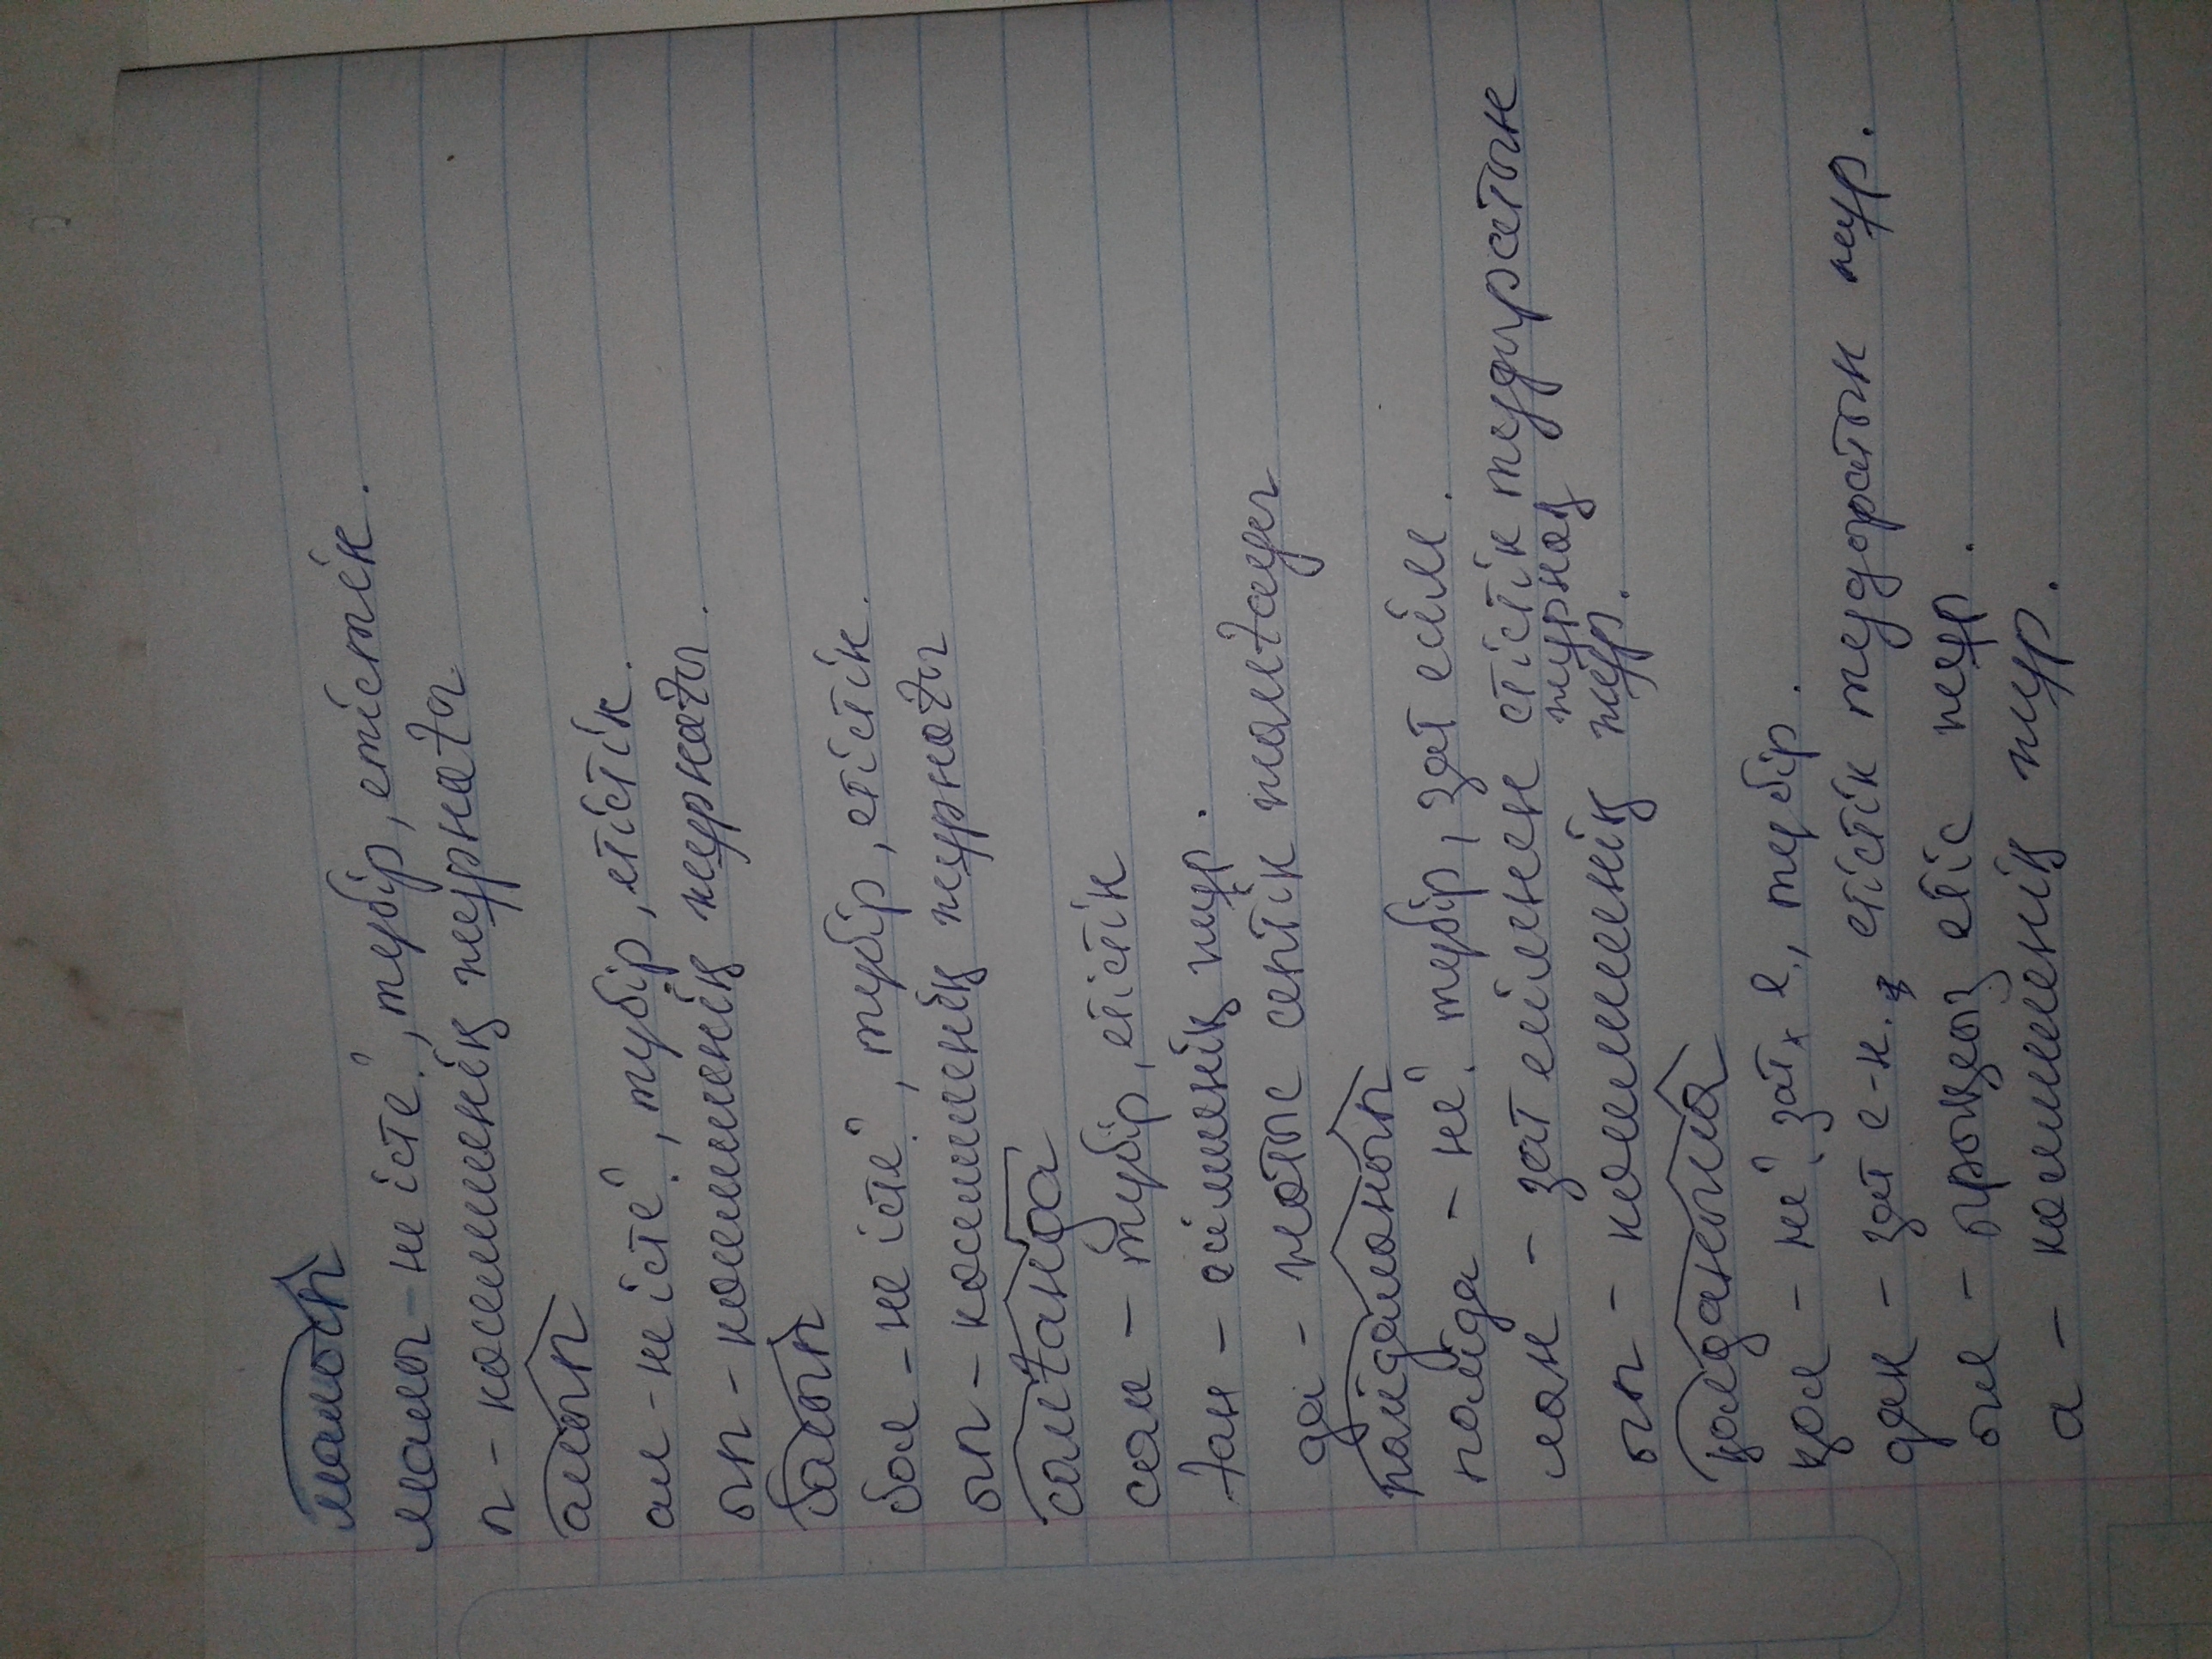 малып
малы - не істе?, түбір, етістік.
п - көсемшенің жұрнағы
алып
ал - не істе?, түбір, етістік.
ып - көсемшенің жұрнағы.
балып
бал - не істе?, түбір, етістік.
ып - көсемшенің жұрнағы
салғанда
сал - түбір, етістік
ған - есімшенің жұр.
да - жатыс септік жалғауы
пайдаланып
пайда - не? түбір, зат есім.
лан - зат есімнен етістік тудыратын
жұрнақ
ып - көсемшенің жұр.
қолданыла
қол - не? зат е., түбір.
дан - зат е-н. етістік тудыратын жұр.
ыл - ырықсыз етіс жұр.
а - көсемшенің жұр.